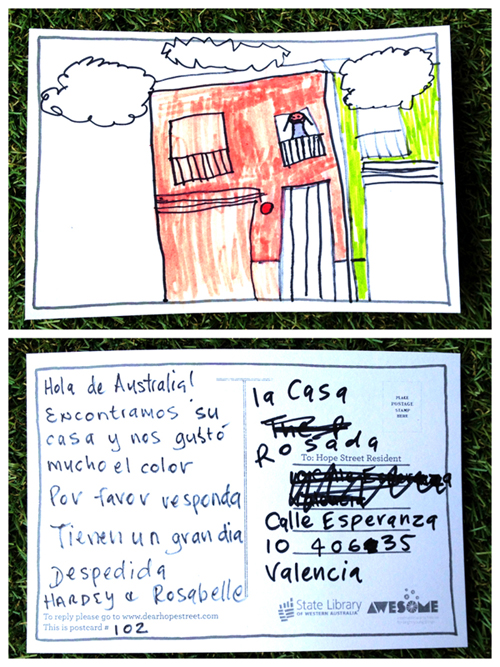 Hola de Australia!
Encontramos su
casa y nos gustó
mucho el color
Por favor responda
Tienen un gran dia
Despedida
HARDEY & Rosabelle
To reply please go to www.dearhopestreet.com
This is postcard # 102
la Casa
Rosada
PLACE
POSTAGE
STAMP
HERE
To: Hope Street Resident
Calle Esperanza
10 406 35
Valencia
State Library
OF WESTERN AUSTRALIA
AWESOME